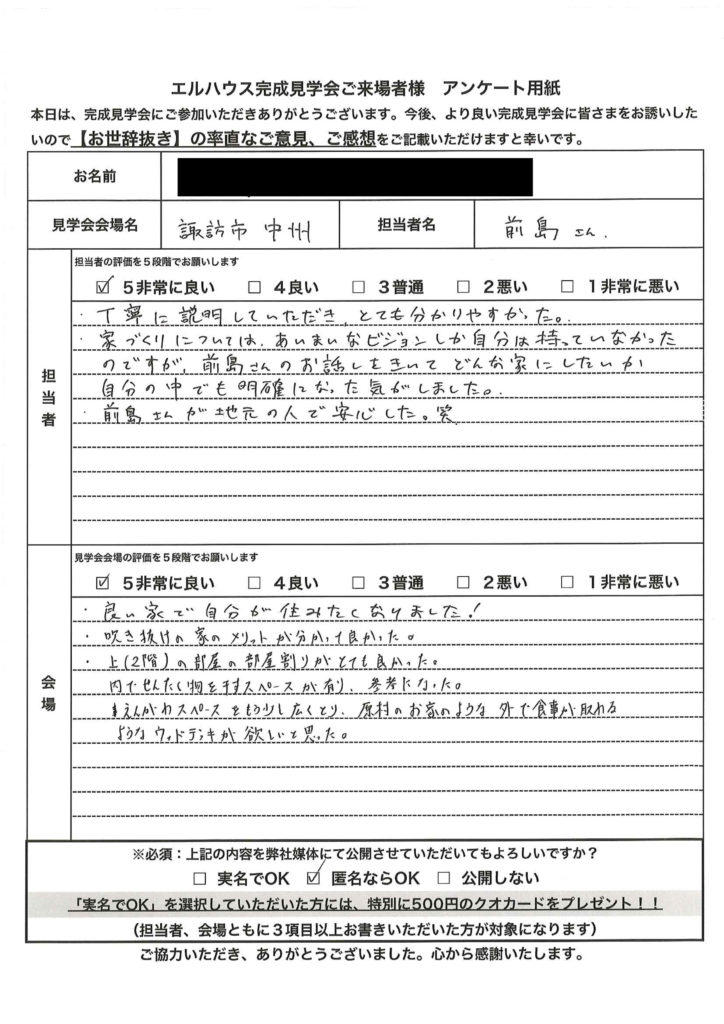 エルハウス完成見学会ご来場者様　アンケート用紙
本日は、完成見学会にご参加いただきありがとうございます。今後、より良い完成見学会に皆さまをお誘いした
いので【お世辞抜き】の率直なご意見、ご感想をご記載いただけますと幸いです。
お名前
見学会会場名　諏訪市 中州　担当者名　前島さん.
担当者
担当者の評価を５段階でお願いします
☑ ５非常に良い　□ ４良い　□ ３普通　□ ２悪い　□ １非常に悪い
・丁寧に説明していただき、とても分かりやすかった。
・家づくりについては、あいまいなビジョンしか自分は持っていなかった
のですが、前島さんのお話しをきいてどんな家にしたいか
自分の中でも明確になった気がしました。
・前島さんが地元の人で安心した。笑
会場
見学会会場の評価を５段階でお願いします
☑ ５非常に良い　□ ４良い　□ ３普通　□ ２悪い　□ １非常に悪い
・良い家で自分が住みたくなりました！
・吹き抜けの家のメリットが分かって良かった。
・上(2階)の部屋の部屋割りがとても良かった。
内でせんたく物を干すスペースが有り、参考になった。
えんがわスペースをもう少し広くとり、原村のお家のような外で食事が取れる
ようなウッドデッキが欲しいと思った。
※必須：上記の内容を弊社媒体にて公開させていただいてもよろしいですか？
□ 実名でOK　☑ 匿名ならOK　□ 公開しない
「実名でOK」を選択していただいた方には、特別に500円のクオカードをプレゼント！！
（担当者、会場ともに３項目以上お書きいただいた方が対象になります）
ご協力いただき、ありがとうございました。心から感謝いたします。